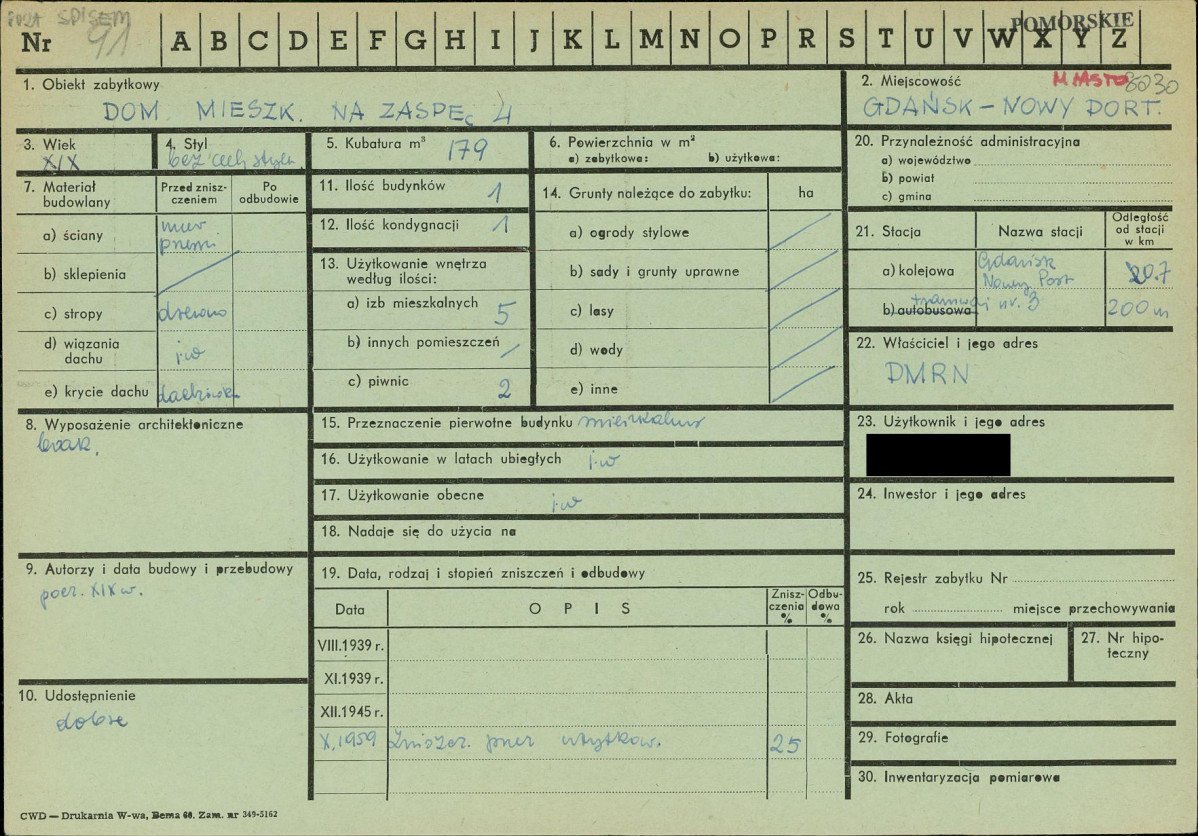 POZA SPISEM
91
POMORSKIE
Nr A B C D E F G H I J K L M N O P R S T U V W X Y Z
1. Obiekt zabytkowy
DOM MIESZK. NA ZASPĘ 4
2. Miejscowość
MIASTO 8030
GDAŃSK – NOWY PORT.
3. Wiek
XIX
4. Styl
bez cech stylu.
5. Kubatura m³ 179
6. Powierzchnia w m²
a) zabytkowa: b) użytkowa:
20. Przynależność administracyjna
a) województwo
b) powiat
c) gmina
7. Materiał budowlany
Przed znisz-
czeniem
Po
odbudowie
a) ściany
mur
b) sklepienia
c) stropy drewno
d) wiązania
dachu j.w
e) krycie dachu dachówk.
11. Ilość budynków 1
12. Ilość kondygnacji 1
13. Użytkowanie wnętrza
według ilości:
a) izb mieszkalnych 5
b) innych pomieszczeń /
c) piwnic 2
14. Grunty należące do zabytku: ha
a) ogrody stylowe
b) sady i grunty uprawne
c) lasy
d) wody
e) inne
21. Stacja
Nazwa stacji
Odległość
od stacji
w km
a) kolejowa Gdańsk
Nowy Port 0.7
b) autobusowa tramwaj nr. 3 200 m
22. Właściciel i jego adres
DMRN
8. Wyposażenie architektoniczne
brak.
15. Przeznaczenie pierwotne budynku mieszkalny
16. Użytkowanie w latach ubiegłych j.w
17. Użytkowanie obecne j.w
18. Nadaje się do użycia na
23. Użytkownik i jego adres
24. Inwestor i jego adres
9. Autorzy i data budowy i przebudowy
pocz. XIX w.
19. Data, rodzaj i stopień zniszczeń i odbudowy
Data O P I S
Znisz-
czenia
%
Odbu-
dowa
%
VIII.1939 r.
XI.1939 r.
XII.1945 r.
X.1959 Zniszcz. przez użytkow. 25
25. Rejestr zabytku Nr
rok miejsce przechowywania
26. Nazwa księgi hipotecznej
27. Nr hipo-
teczny
10. Udostępnienie
dobre
28. Akta
29. Fotografie
30. Inwentaryzacja pomiarowa
CWD — Drukarnia W-wa, Bema 60. Zam. nr 349-5162